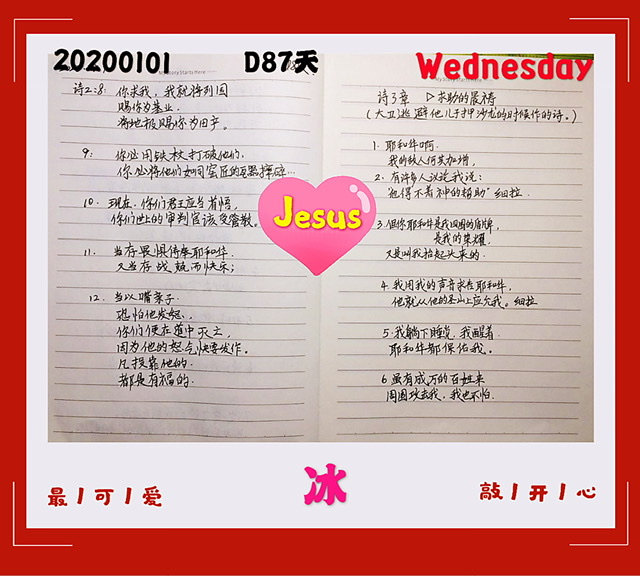 20200101 D87天 Wednesday
Story Starts Here
诗2:8: 你求我,我就将列国
赐你为基业.
将地极赐你为田产.
9: 你必用铁杖打破他们.
你必将他们如同窑匠的瓦器摔碎…
10. 现在. 你们君王应当省悟,
你们世上的审判官该受管教.
11. 当存畏惧侍奉耶和华
又当存战兢而快乐;
12. 当以嘴亲子.
恐怕他发怒、
你们便在道中灭亡,
因为他的怒气快要发作.
凡投靠他的.
都是有福的.
Jesus
诗3章 ▷求助的晨祷
(大卫逃避他儿子押沙龙的时候作的诗。)
1. 耶和华啊.
我的敌人何其加增,
2. 有许多人议论我说:
"他得不着神的帮助" 细拉.
3. 但你耶和华是我四围的盾牌,
是我的荣耀,
又是叫我抬起头来的.
4. 我用我的声音求告耶和华,
他就从他的圣山上应允我。细拉
5. 我躺下睡觉, 我醒着
耶和华都保佑我。
6 虽有成万的百姓来
周围攻击我, 我也不怕.
最/可/爱
冰
敲/开/心